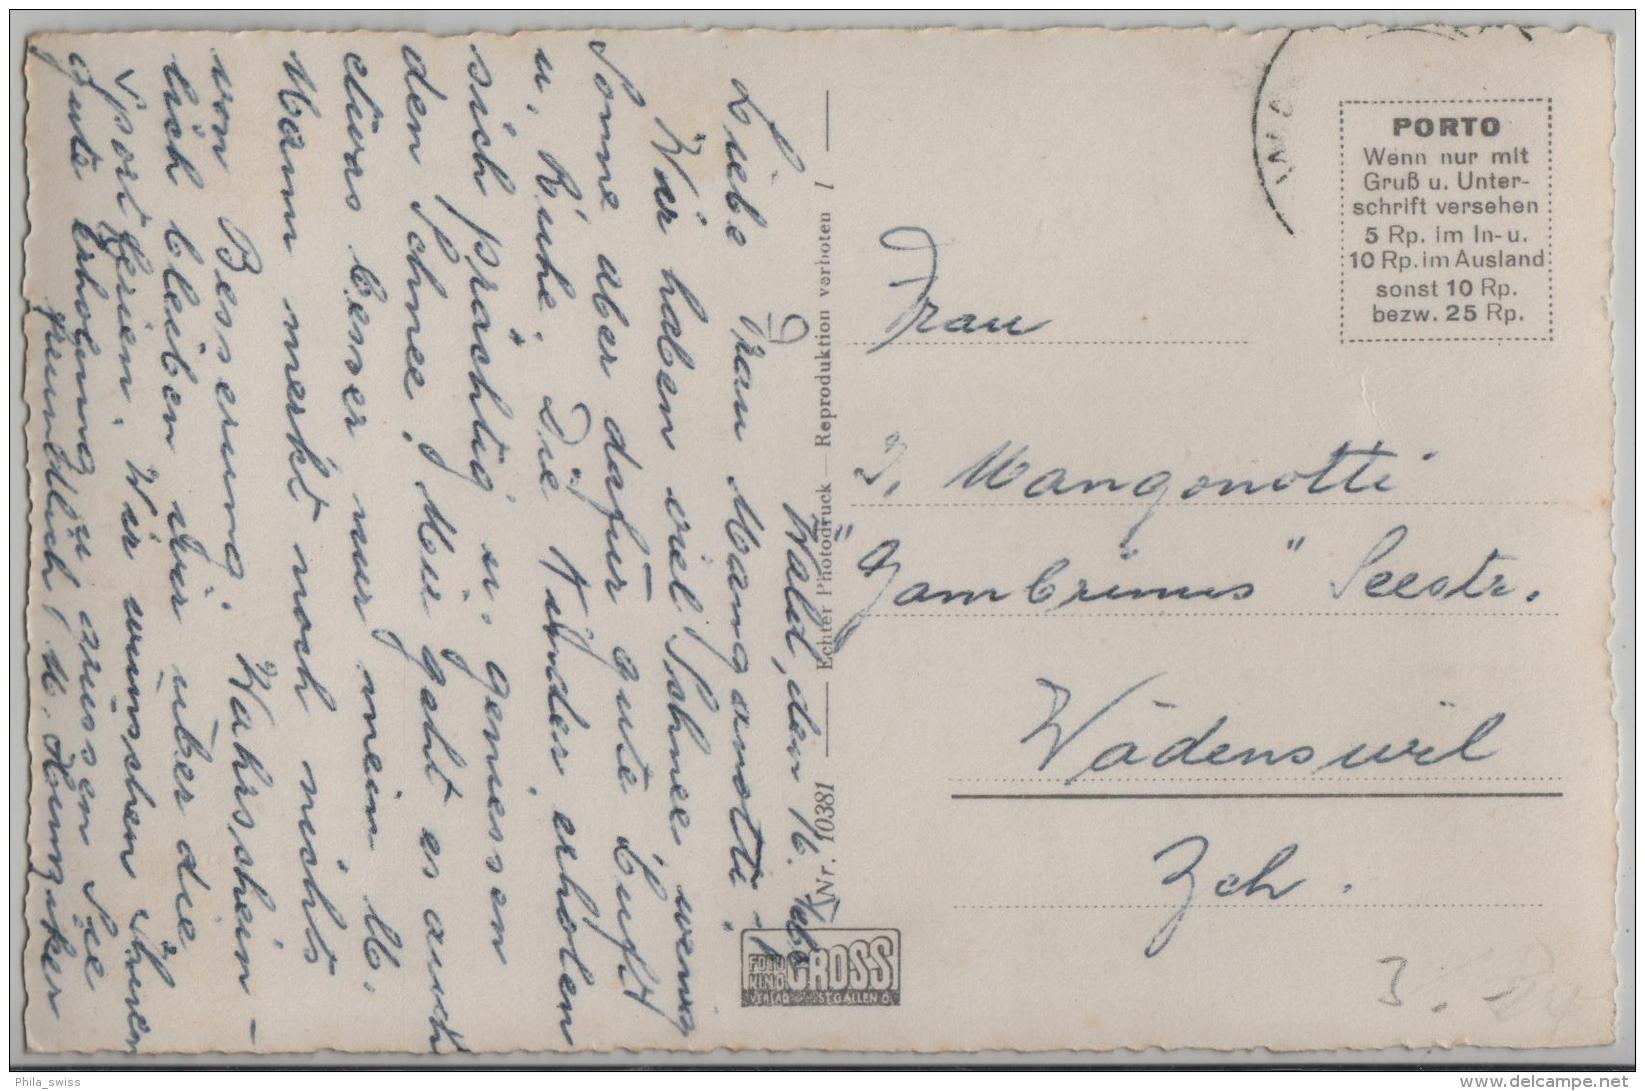 Wald, den 16. Febr.
Liebe Frau Manganotti!
Wir haben viel Schnee, wenig
Sonne aber dafür gute Luft
u. Ruhe. Die Kinder erholen
sich prächtig u. geniessen
den Schnee. Mir geht es auch
etwas besser nur mein lb.
Mann merkt noch nichts
von Besserung. Wahrschein-
lich bleiben wir über die
Sportferien. Wir wünschen Ihnen
gute Erholung u. grüssen Sie
freundlich H. Hunziker
Echter Photodruck — Reproduktion verboten 1
Nr. 10381
FOTO KINO GROSS
VERLAG ST. GALLEN O.
PORTO
Wenn nur mit
Gruß u. Unter-
schrift versehen
5 Rp. im In- u.
10 Rp. im Ausland
sonst 10 Rp.
bezw. 25 Rp.
Frau
J. Mangonotti
"Gambrinus" Seestr.
Wädenswil
Zch.
3.
Phila_swiss
www.delcampe.net